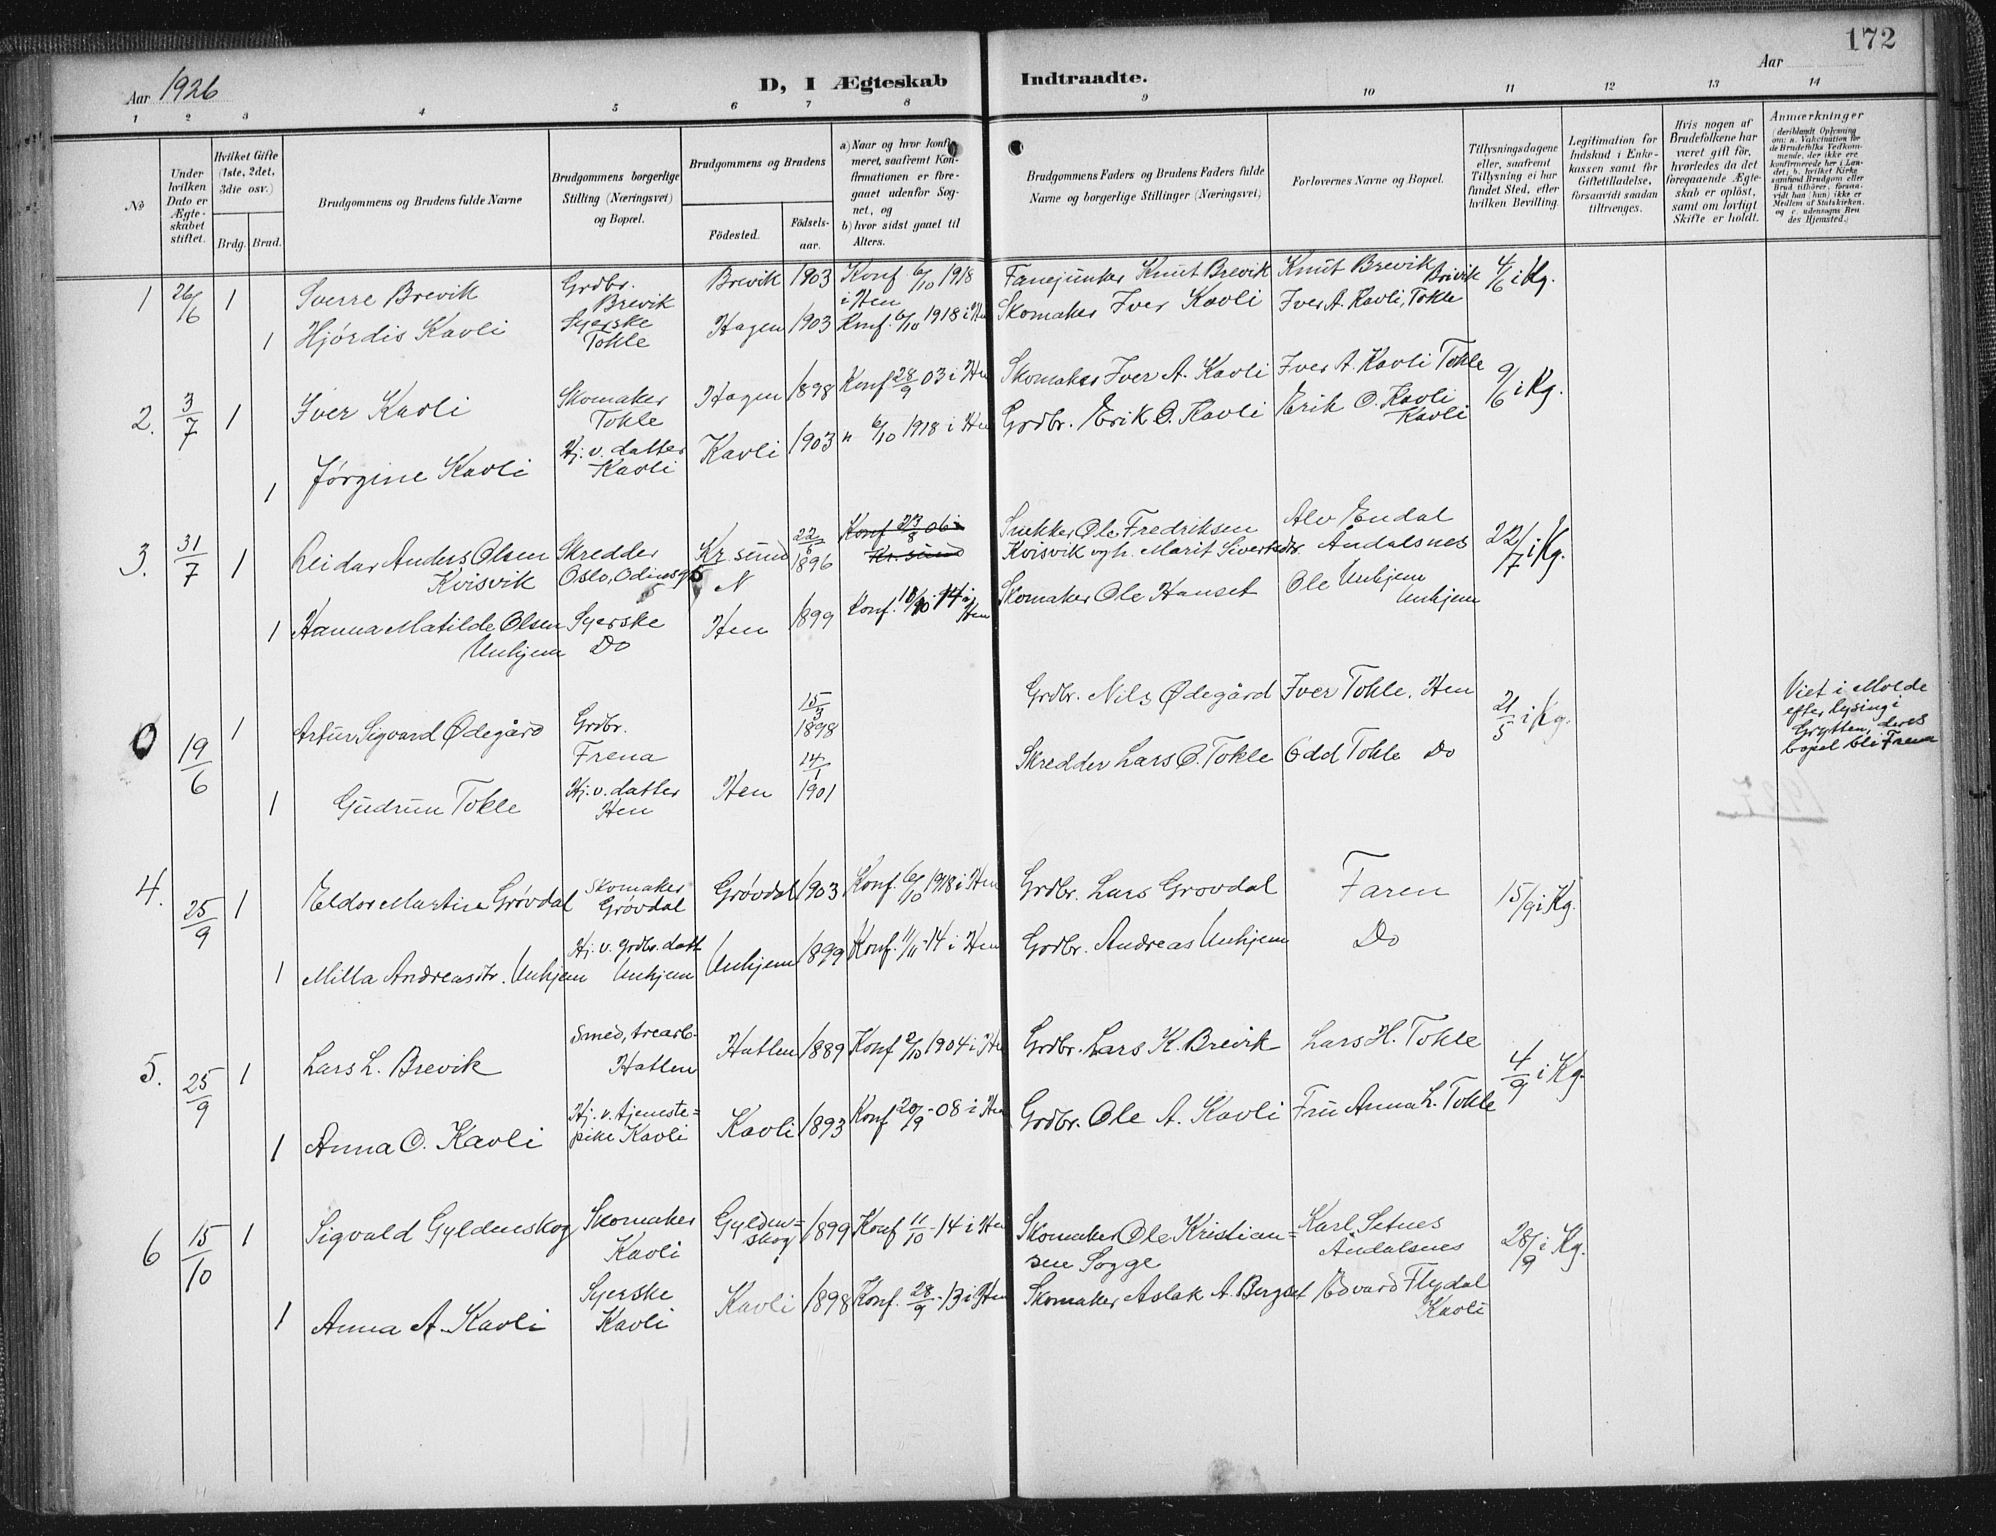 172
Aar 1926
D, I Ægteskab Indtraadte.
Aar
1 2 3 4 5 6 7 8 9 10 11 12 13 14
No
Under hvilken Dato er Ægteskabet stiftet.
Hvilket Gifte (1ste, 2det, 3die osv.)
Brdg. Brud.
Brudgommens og Brudens fulde Navne
Brudgommens borgerlige Stilling (Næringsvei) og Bopæl.
Brudgommens og Brudens
Födested. Födselsaar.
a) Naar og hvor konfirmeret, saafremt Konfirmationen er foregaaet udenfor Sognet, og
b) hvor sidst gaaet til Alters.
Brudgommens Faders og Brudens Faders fulde Navne og borgerlige Stillinger (Næringsvei)
Forlovernes Navne og Bopæl.
Tillysningsdagene eller, saafremt Tillysning ei har fundet Sted, efter hvilken Bevilling.
Legitimation for Indskud i Enkekassen samt for Giftetilladelse, forsaavidt saadan tiltrænges.
Hvis nogen af Brudefolkene har været gift för, hvorledes da det foregaaende Ægteskab er oplöst, samt om lovligt Skifte er holdt.
Anmærkninger
(deriblandt Oplysning om: a. Vakcination for de Brudefolks Vedkommende, der ikke ere konfirmerede her i Landet; b. hvilket Kirkesamfund Brudgom eller Brud tilhörer, forsaavidt han (hun) ikke er Medlem af Statskirken, og c. udensogns Brudes Hjemsted.)
1 26/6 1 Sverre Brevik Grdbr. Brevik Brevik 1903 Konf. 6/10 1918 i Hen Fanejunker Knut Brevik Knut Brevik Brevik 4/6 i Kg.
1 Hjørdis Kavli Syerske Tokle Hagen 1903 Konf. 6/10 1918 i Hen Skomaker Iver Kavli Iver A. Kavli, Tokle
2. 3/7 1 Iver Kavli Skomaker Tokle Hagen 1898 Konf 28/9 03 i Hen Skomaker Iver A. Kavli Iver A. Kavli Tokle 9/6 i Kg.
1 Jørgine Kavli Hj. v. datter Kavli Kavli 1903 " 6/10 1918 i Hen Grdbr. Erik O. Kavli Erik O. Kavli Kavli
3. 31/7 1 Reidar Anders Olsen Kvisvik Skredder Oslo, Odinsgt 5 Kr. sund N 22/6 1896 Konf 23/8 06 i Kr. sund Snekker Ole Fredriksen Kvisvik og h. Marit Sivertsdtr. Alv Endal Åndalsnes 22/7 i Kg.
1 Hanna Matilde Olsen Unhjem Syerske Do Hen 1899 Konf. 10/10 14 i Hen Skomaker Ole Hanset Ole Unhjem Unhjem
0 19/6 1 Artur Sigvard Ødegård Grdbr. Frena 15/3 1898 Grdbr. Nils Ødegård Iver Tokle, Hen 21/5 i Kg. Viet i Molde efter lysing i Grytten, deres bopel bli Frena
1 Gudrun Tokle Hj. v. datter Hen Hen 14/1 1901 Skredder Lars O. Tokle Odd Tokle Do
4. 25/9 1 Eldor Martin Grøvdal Skomaker Grøvdal Grøvdal 1903 Konf. 6/10 1918 i Hen Grdbr. Lars Grøvdal Faren 15/9 i Kg.
1 Milla Andreasdtr. Unhjem Hj. v. grdbr. datt Unhjem Unhjem 1899 Konf. 11/11 -14 i Hen Grdbr. Andreas Unhjem Do
5. 25/9 1 Lars L. Brevik Smed, trearb. Hatlen Hatlen 1889 Konf 2/10 1904 i Hen Grdbr. Lars K. Brevik Lars H. Tokle 4/9 i Kg.
1 Anna O. Kavli Hj. v. tjenestepike Kavli Kavli 1893 Konf 20/9 -08 i Hen Grdbr. Ole A. Kavli Fru Anna L. Tokle
6 15/10 1 Sigvald Gyldenskog Skomaker Kavli Gyldenskog 1899 Konf 11/10 -14 i Hen Skomaker Ole Kristiansen Sogge Karl Setnes Åndalsnes 28/9 i Kg.
1 Anna A. Kavli Syerske Kavli Kavli 1898 Konf. 28/9 -13 i Hen Skomaker Aslak A. Bergset Edvard Flydal Kavli